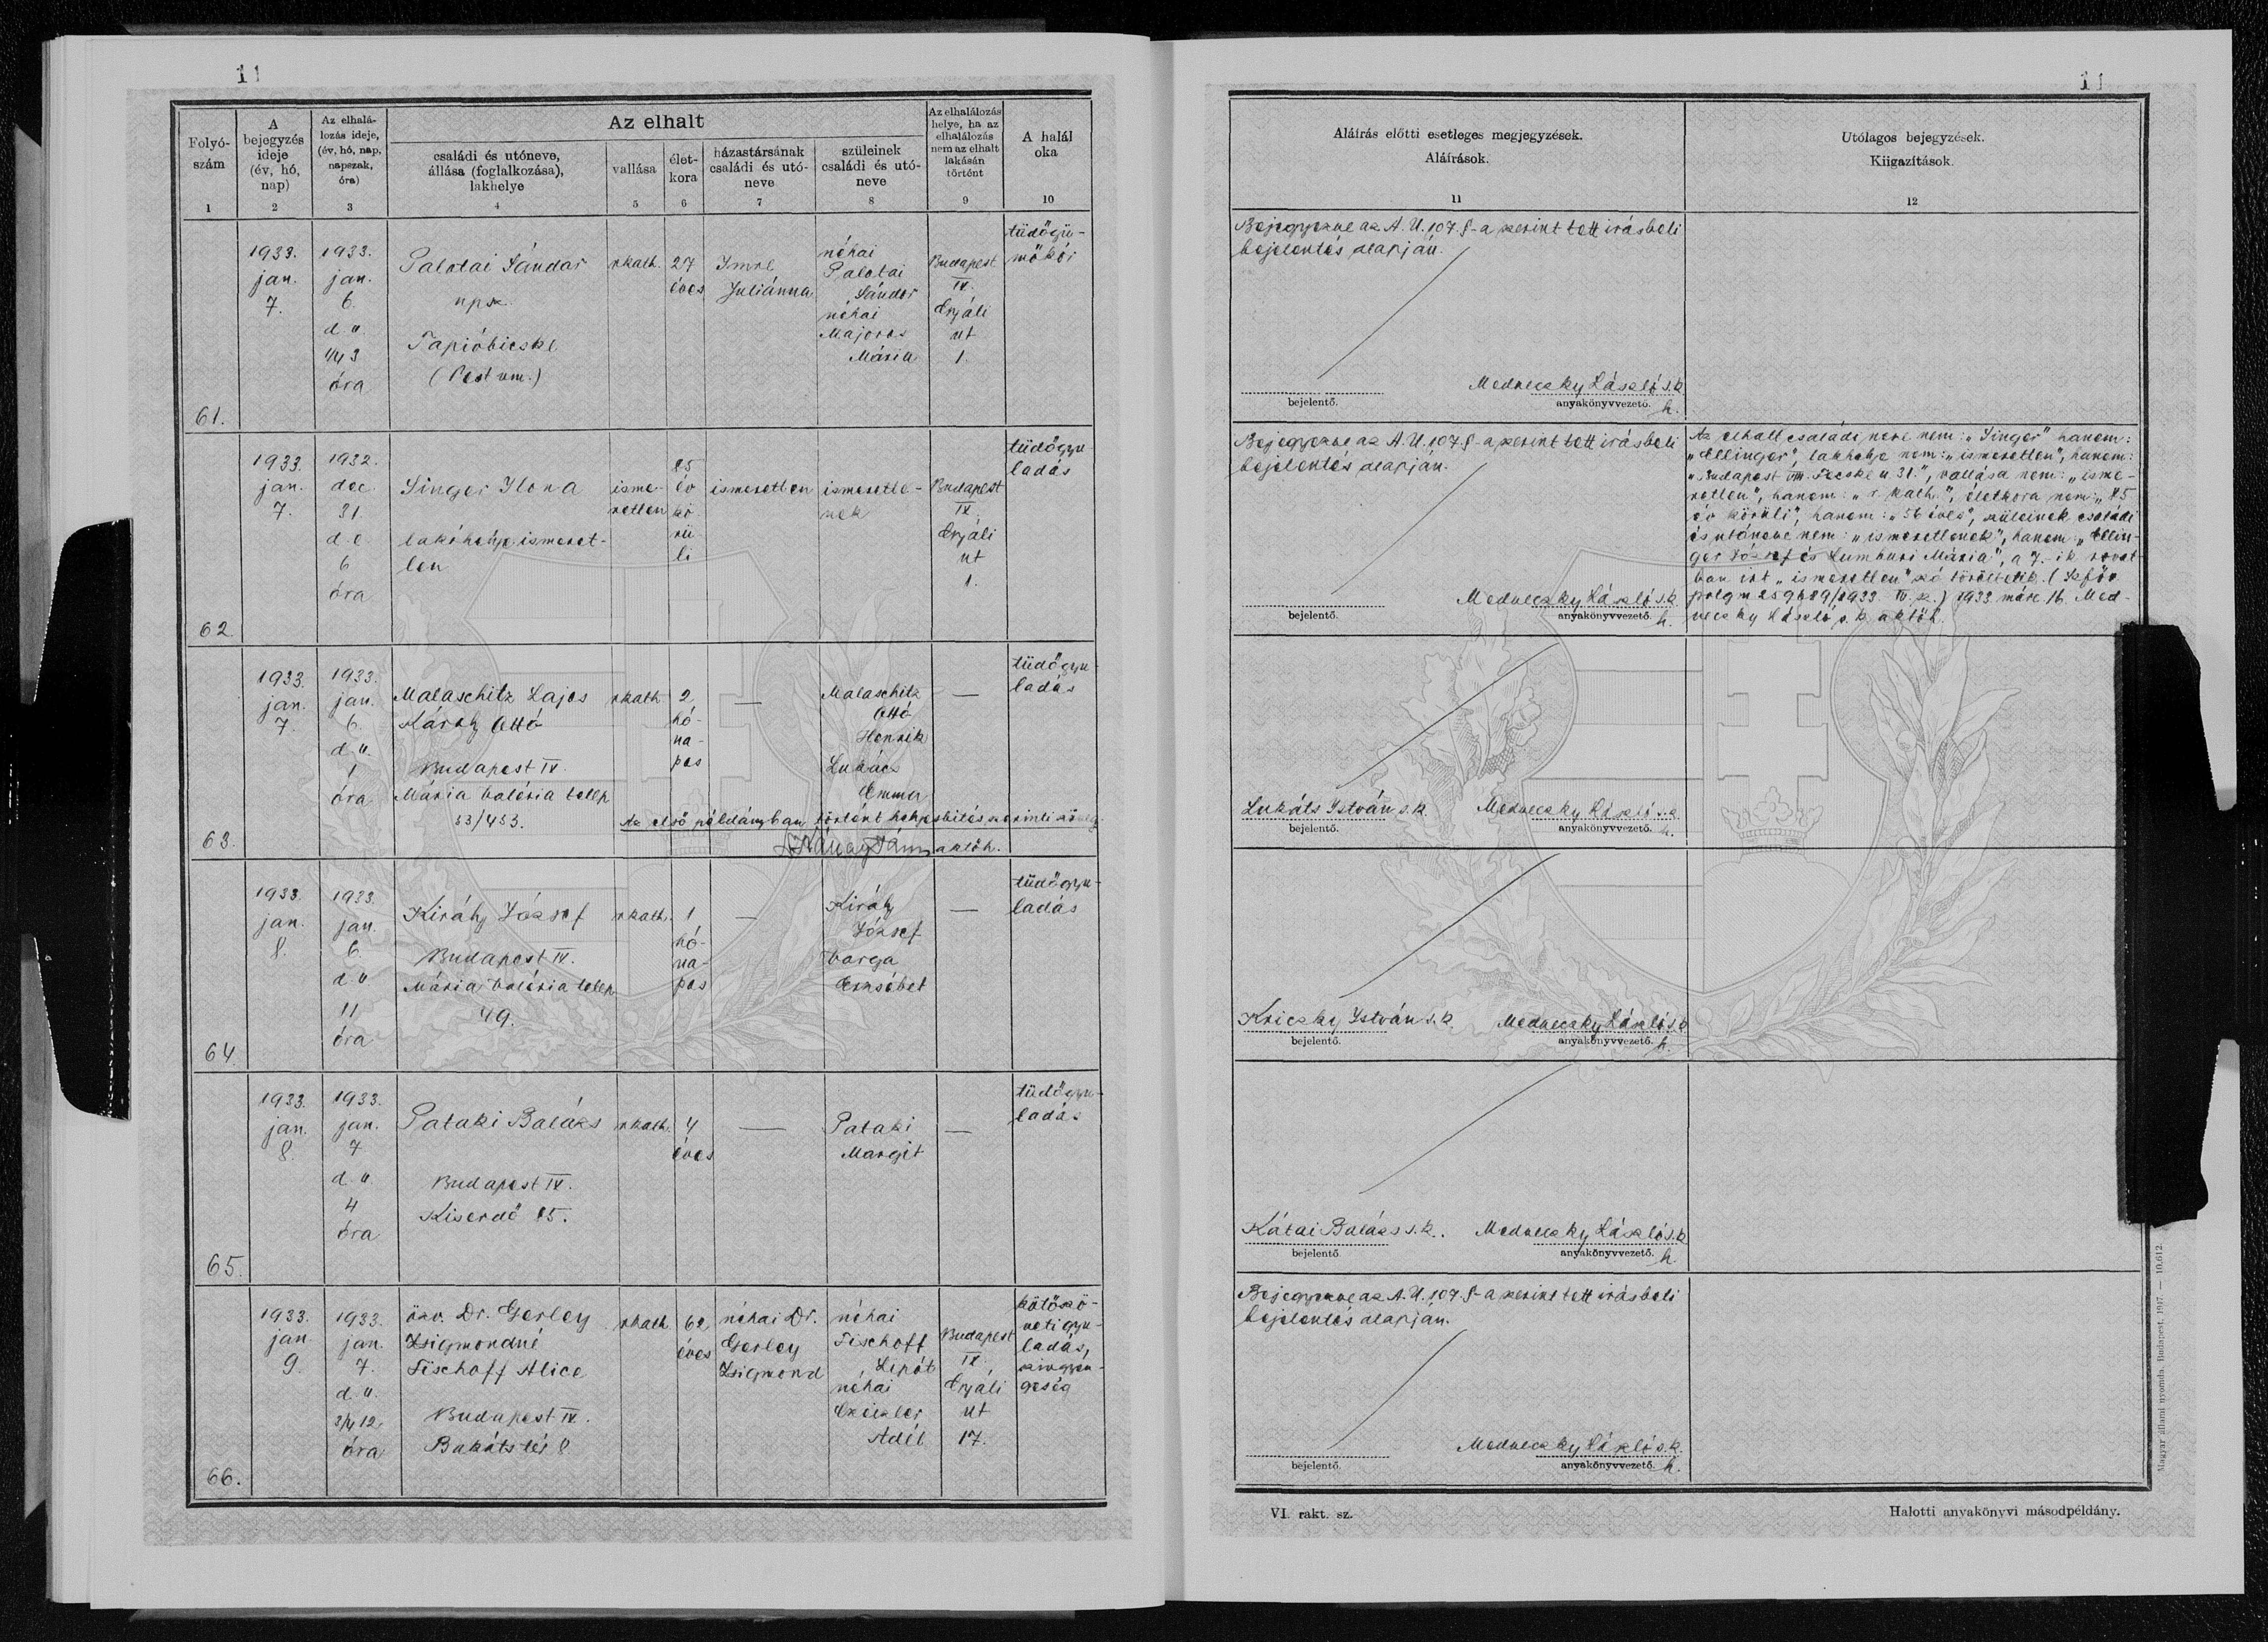 11
Folyó-
szám
A
bejegyzés
ideje
(év, hó,
nap)
Az elhalá-
lozás ideje,
(év, hó, nap,
napszak,
óra)
Az elhalt
családi és utóneve,
állása (foglalkozása),
lakhelye
vallása
élet-
kora
házastársának
családi és utó-
neve
szüleinek
családi és utó-
neve
Az elhalálozás
helye, ha az
elhalálozás
nem az elhalt
lakásán
történt
A halál
oka
1 2 3 4 5 6 7 8 9 10
61.
1933.
jan.
7.
1933.
jan.
6.
d. u.
1/4 3
óra
Palotai Sándor
npsz.
Tápióbicske
(Pest vm.)
rkath.
27
éves
Imre
Juliánna
néhai
Palotai
Sándor
néhai
Majoros
Mária
Budapest
IX.
Gyáli
ut
1.
tüdőgü-
mőkór
62.
1933.
jan.
7.
1932.
dec.
31.
d. e.
6
óra
Singer Ilona
lakóhelye ismeret-
len
isme-
retlen
85
év
kö
rü
li
ismeretlen
ismeretle-
nek
Budapest
IX.
Gyáli
ut
1.
tüdőgyu
ladás
63.
1933.
jan.
7.
1933.
jan.
6.
d. u.
1
óra
Malaschitz Lajos
Károly Ottó
Budapest IX.
Mária Valéria telep
53/453.
rkath
2
hó-
na-
pos
—
Malaschitz
Ottó
Henrik
Lukács
Emma
—
tüdőgyu-
ladás
Az első példányban történt helyesbítés szerinti szöveg.
aktöh.
64.
1933.
jan.
8.
1933.
jan.
6.
d. u.
11
óra
Király József
Budapest IX.
Mária Valéria telep
49.
rkath.
1
hó-
na-
pos
—
Király
József
Varga
Erzsébet
—
tüdőgyu-
ladás
65.
1933.
jan.
8.
1933.
jan.
7
d. u.
4
óra
Pataki Balázs
Budapest IX.
Kiserdő 85.
rkath.
4
éves
—
Pataki
Margit
—
tüdőgyu-
ladás
66.
1933.
jan.
9.
1933.
jan.
7.
d. u.
3/4 12
óra
özv. Dr. Gerley
Zsigmondné
Fischoff Alice
Budapest IX.
Bakáts tér 8
rkath
62
éves
néhai Dr.
Gerley
Zsigmond
néhai
Fischoff
Lipót
néhai
Czeizler
Adél
Budapest
IX.
Gyáli
ut
17.
kötőszö-
veti gyu-
ladás,
szivgyen-
geség
11
Aláírás előtti esetleges megjegyzések.
Aláírások.
11
Utólagos bejegyzések.
Kiigazítások.
12
Bejegyezve az A. U. 107. §-a szerint tett irásbeli
bejelentés alapján.
Medveczky László s. k.
bejelentő. anyakönyvvezető. h.
Bejegyezve az A. U. 107. §-a szerint tett irásbeli
bejelentés alapján.
Medveczky László s. k.
bejelentő. anyakönyvvezető. h.
Az elhalt családi neve nem: „Singer" hanem:
„Ellinger", lakhelye nem: „ismeretlen", hanem:
„Budapest VIII. Fecske u 31.", vallása nem: „isme-
retlen", hanem: „r. kath.", életkora nem: „85
év körüli", hanem: „56 éves", szüleinek családi
és utóneve nem: „ismeretlenek", hanem: „Ellin-
ger József és Mária", a 7.-ik rovat-
ban irt „ismeretlen" szó töröltetik. (Szfőv
polgm 259689/1933. IV. sz.) 1933 márc 16. Med-
veczky László s. k. aktöh.
Lukáts István s. k. Medveczky László s. k.
bejelentő. anyakönyvvezető. h.
Kriczky István s. k. Medveczky László s. k.
bejelentő. anyakönyvvezető. h.
Kátai Balázs s. k. Medveczky László s. k.
bejelentő. anyakönyvvezető. h.
Bejegyezve az A. U. 107. §-a szerint tett irásbeli
bejelentés alapján.
Medveczky László s. k.
bejelentő. anyakönyvvezető. h.
VI. rakt. sz.
Halotti anyakönyvi másodpéldány.
Magyar állami nyomda. Budapest, 1917. — 10.612.